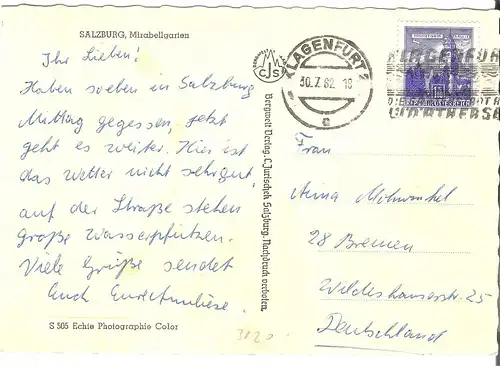 SALZBURG, Mirabellgarten
Ihr Lieben!
Haben soeben in Salzburg
Mittag gegessen, jetzt
geht es weiter. Hier ist
das Wetter nicht sehr gut
auf der Straße stehen
große Wasserpfützen.
Viele Grüße sendet
Euch Eure
S 505 Echte Photographie Color
3020
CJS
Bergwelt Verlag, C. Jurischek, Salzburg, Nachdruck verboten.
KLAGENFURT 2
30.7.62.18
c
KLAGENFURT
WÖRTHERSEE
Frau
Anna
28 Bremen
25
Deutschland